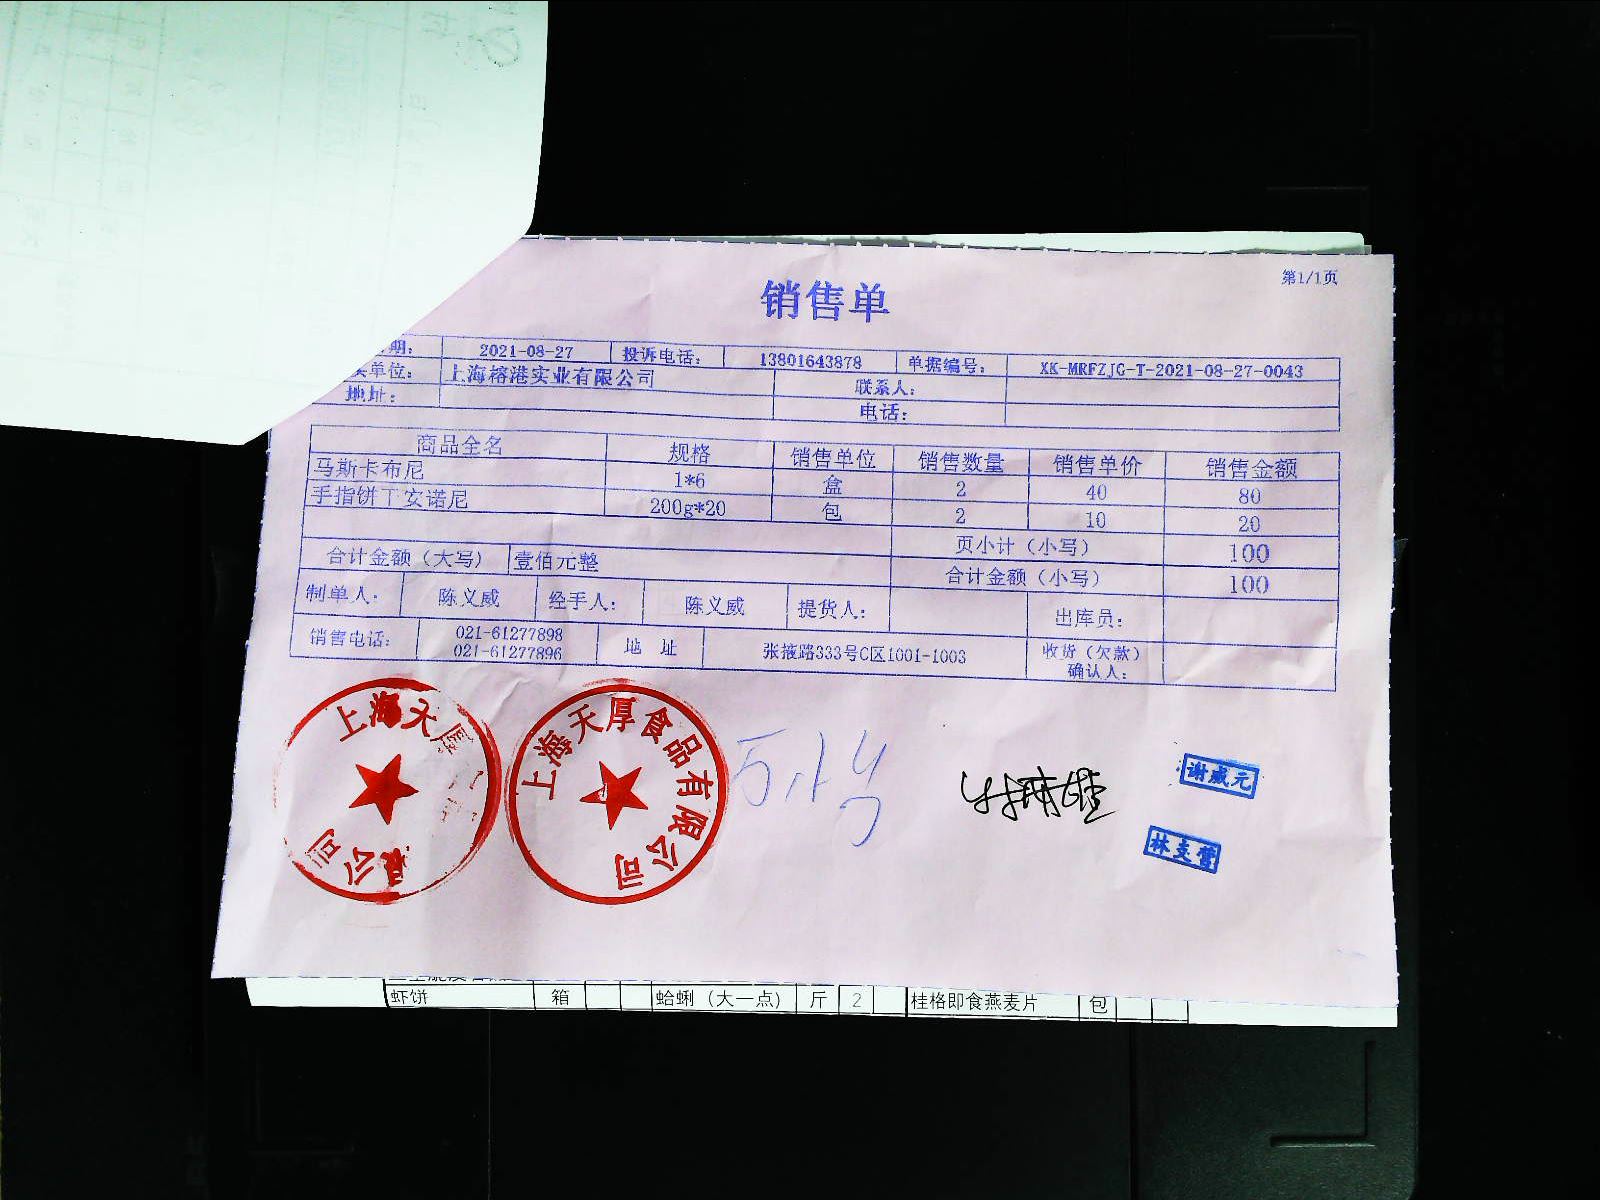 第1/1页
销售单
期: 2021-08-27 投诉电话: 13801643878 单据编号: XK-MRFZJG-T-2021-08-27-0043
单位: 上海榕港实业有限公司 联系人:
地址: 电话:
商品全名 规格 销售单位 销售数量 销售单价 销售金额
马斯卡布尼 1*6 盒 2 40 80
手指饼丅安诺尼 200g*20 包 2 10 20
页小计（小写） 100
合计金额（大写） 壹佰元整 合计金额（小写） 100
制单人: 陈义威 经手人: 陈义威 提货人: 出库员:
销售电话: 021-61277898 021-61277896 地 址 张掖路333号C区1001-1003 收货（欠款）确认人:
上海天厚 公司
上海天厚食品有限公司
谢威元
林
虾饼 箱 蛤蜊（大一点） 斤 2 桂格即食燕麦片 包